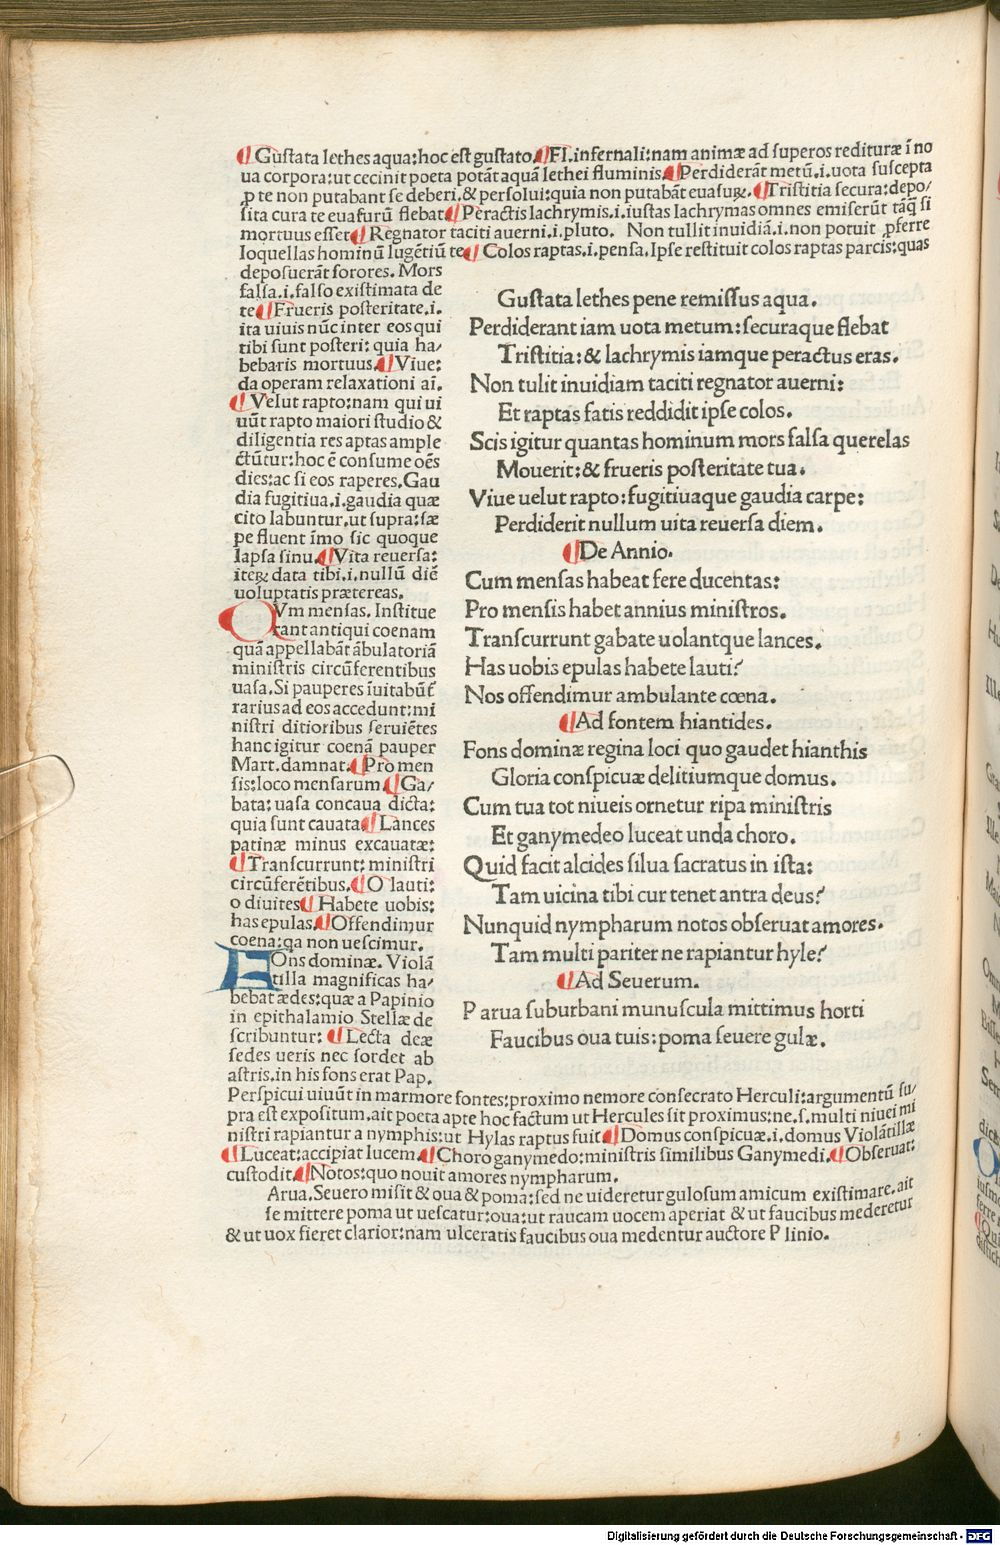 ¶Gustata lethes aqua:hoc est gustato.¶Fl.infernali:nam animæ ad superos redituræ ī no
ua corpora:ut cecinit poeta potāt aquā lethei fluminis.¶Perdiderāt metū.i.uota suscepta
ꝓ te non putabant se deberi.& persolui:quia non putabāt euasuꝝ.¶Tristitia secura:depo/
sita cura te euasurū flebat¶Peractis lachrymis.i.iustas lachrymas omnes emiserūt tāꝗ si
mortuus esset¶Regnator taciti auerni.i.pluto. Non tullit inuidiā.i.non potuit ꝑferre
loquellas hominū lugētiū te¶Colos raptas.i.pensa.Ipse restituit colos raptas parcis:quas
deposuerāt sorores. Mors
falsa.i.falso existimata de
te¶Frueris posteritate.i.
ita uiuis nūc inter eos qui
tibi sunt posteri: quia ha/
bebaris mortuus.¶Viue:
da operam relaxationi aī.
¶Velut rapto:nam qui ui
uūt rapto maiori studio &
diligentia res aptas ample
ctūtur:hoc ē consume oēs
dies:ac si eos raperes.Gau
dia fugitiua.i.gaudia quæ
cito labuntur.ut supra:sæ
pe fluent īmo sic quoque
lapsa sinu.¶Vita reuersa:
iteꝝ data tibi.i.nullū diē
uoluptatis prætereas.
Gustata lethes pene remissus aqua.
Perdiderant iam uota metum:securaque flebat
Tristitia:& lachrymis iamque peractus eras.
Non tulit inuidiam taciti regnator auerni:
Et raptas fatis reddidit ipse colos.
Scis igitur quantas hominum mors falsa querelas
Mouerit:& frueris posteritate tua.
Viue uelut rapto:fugitiuaque gaudia carpe:
Perdiderit nullum uita reuersa diem.
¶De Annio.
Cum mensas habeat fere ducentas:
Pro mensis habet annius ministros.
Transcurrunt gabate uolantque lances.
Has uobis epulas habete lauti?
Nos offendimur ambulante cœna.
¶Ad fontem hiantides.
Fons dominæ regina loci quo gaudet hianthis
Gloria conspicuæ delitiumque domus.
Cum tua tot niueis ornetur ripa ministris
Et ganymedeo luceat unda choro.
Quid facit alcides silua sacratus in ista:
Tam uicina tibi cur tenet antra deus?
Nunquid nympharum notos obseruat amores.
Tam multi pariter ne rapiantur hyle?
¶Ad Seuerum.
Parua suburbani munuscula mittimus horti
Faucibus oua tuis:poma seuere gulæ.
QVm mensas. Institue
rant antiqui coenam
quā appellabāt ābulatoriā
ministris circūferentibus
uasa.Si pauperes īuitabūt̄
rarius ad eos accedunt:mi
nistri ditioribus seruiētes
hanc igitur coenā pauper
Mart.damnat.¶Pro men
sis:loco mensarum.¶Ga/
bata:uasa concaua dicta:
quia sunt cauata¶Lances
patinæ minus excauatæ:
¶Transcurrunt: ministri
circūferētibus.¶O lauti:
o diuites¶Habete uobis:
has epulas.¶Offendimur
coena:qa non uescimur.
FOns dominæ. Violā
tilla magnificas ha/
bebat ædes:quæ a Papinio
in epithalamio Stellæ de
scribuntur: ¶Lecta deæ
sedes ueris nec sordet ab
astris.in his fons erat Pap.
Perspicui uiuūt in marmore fontes:proximo nemore consecrato Herculi:argumentū su/
pra est expositum.ait poeta apte hoc factum ut Hercules sit proximus:ne.s.multi niuei mi
nistri rapiantur a nymphis:ut Hylas raptus fuit¶Domus conspicuæ.i.domus Violātillæ
¶Luceat:accipiat lucem.¶Choro ganymedo:ministris similibus Ganymedi.¶Obseruat:
custodit.¶Notos:quo nouit amores nympharum.
Arua.Seuero misit & oua & poma:sed ne uideretur gulosum amicum existimare.ait
se mittere poma ut uescatur:oua:ut raucam uocem aperiat & ut faucibus mederetur
& ut uox fieret clarior:nam ulceratis faucibus oua medentur auctore Plinio.
Digitalisierung gefördert durch die Deutsche Forschungsgemeinschaft - DFG